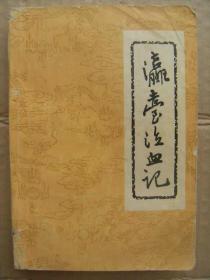 瀛臺泣血记